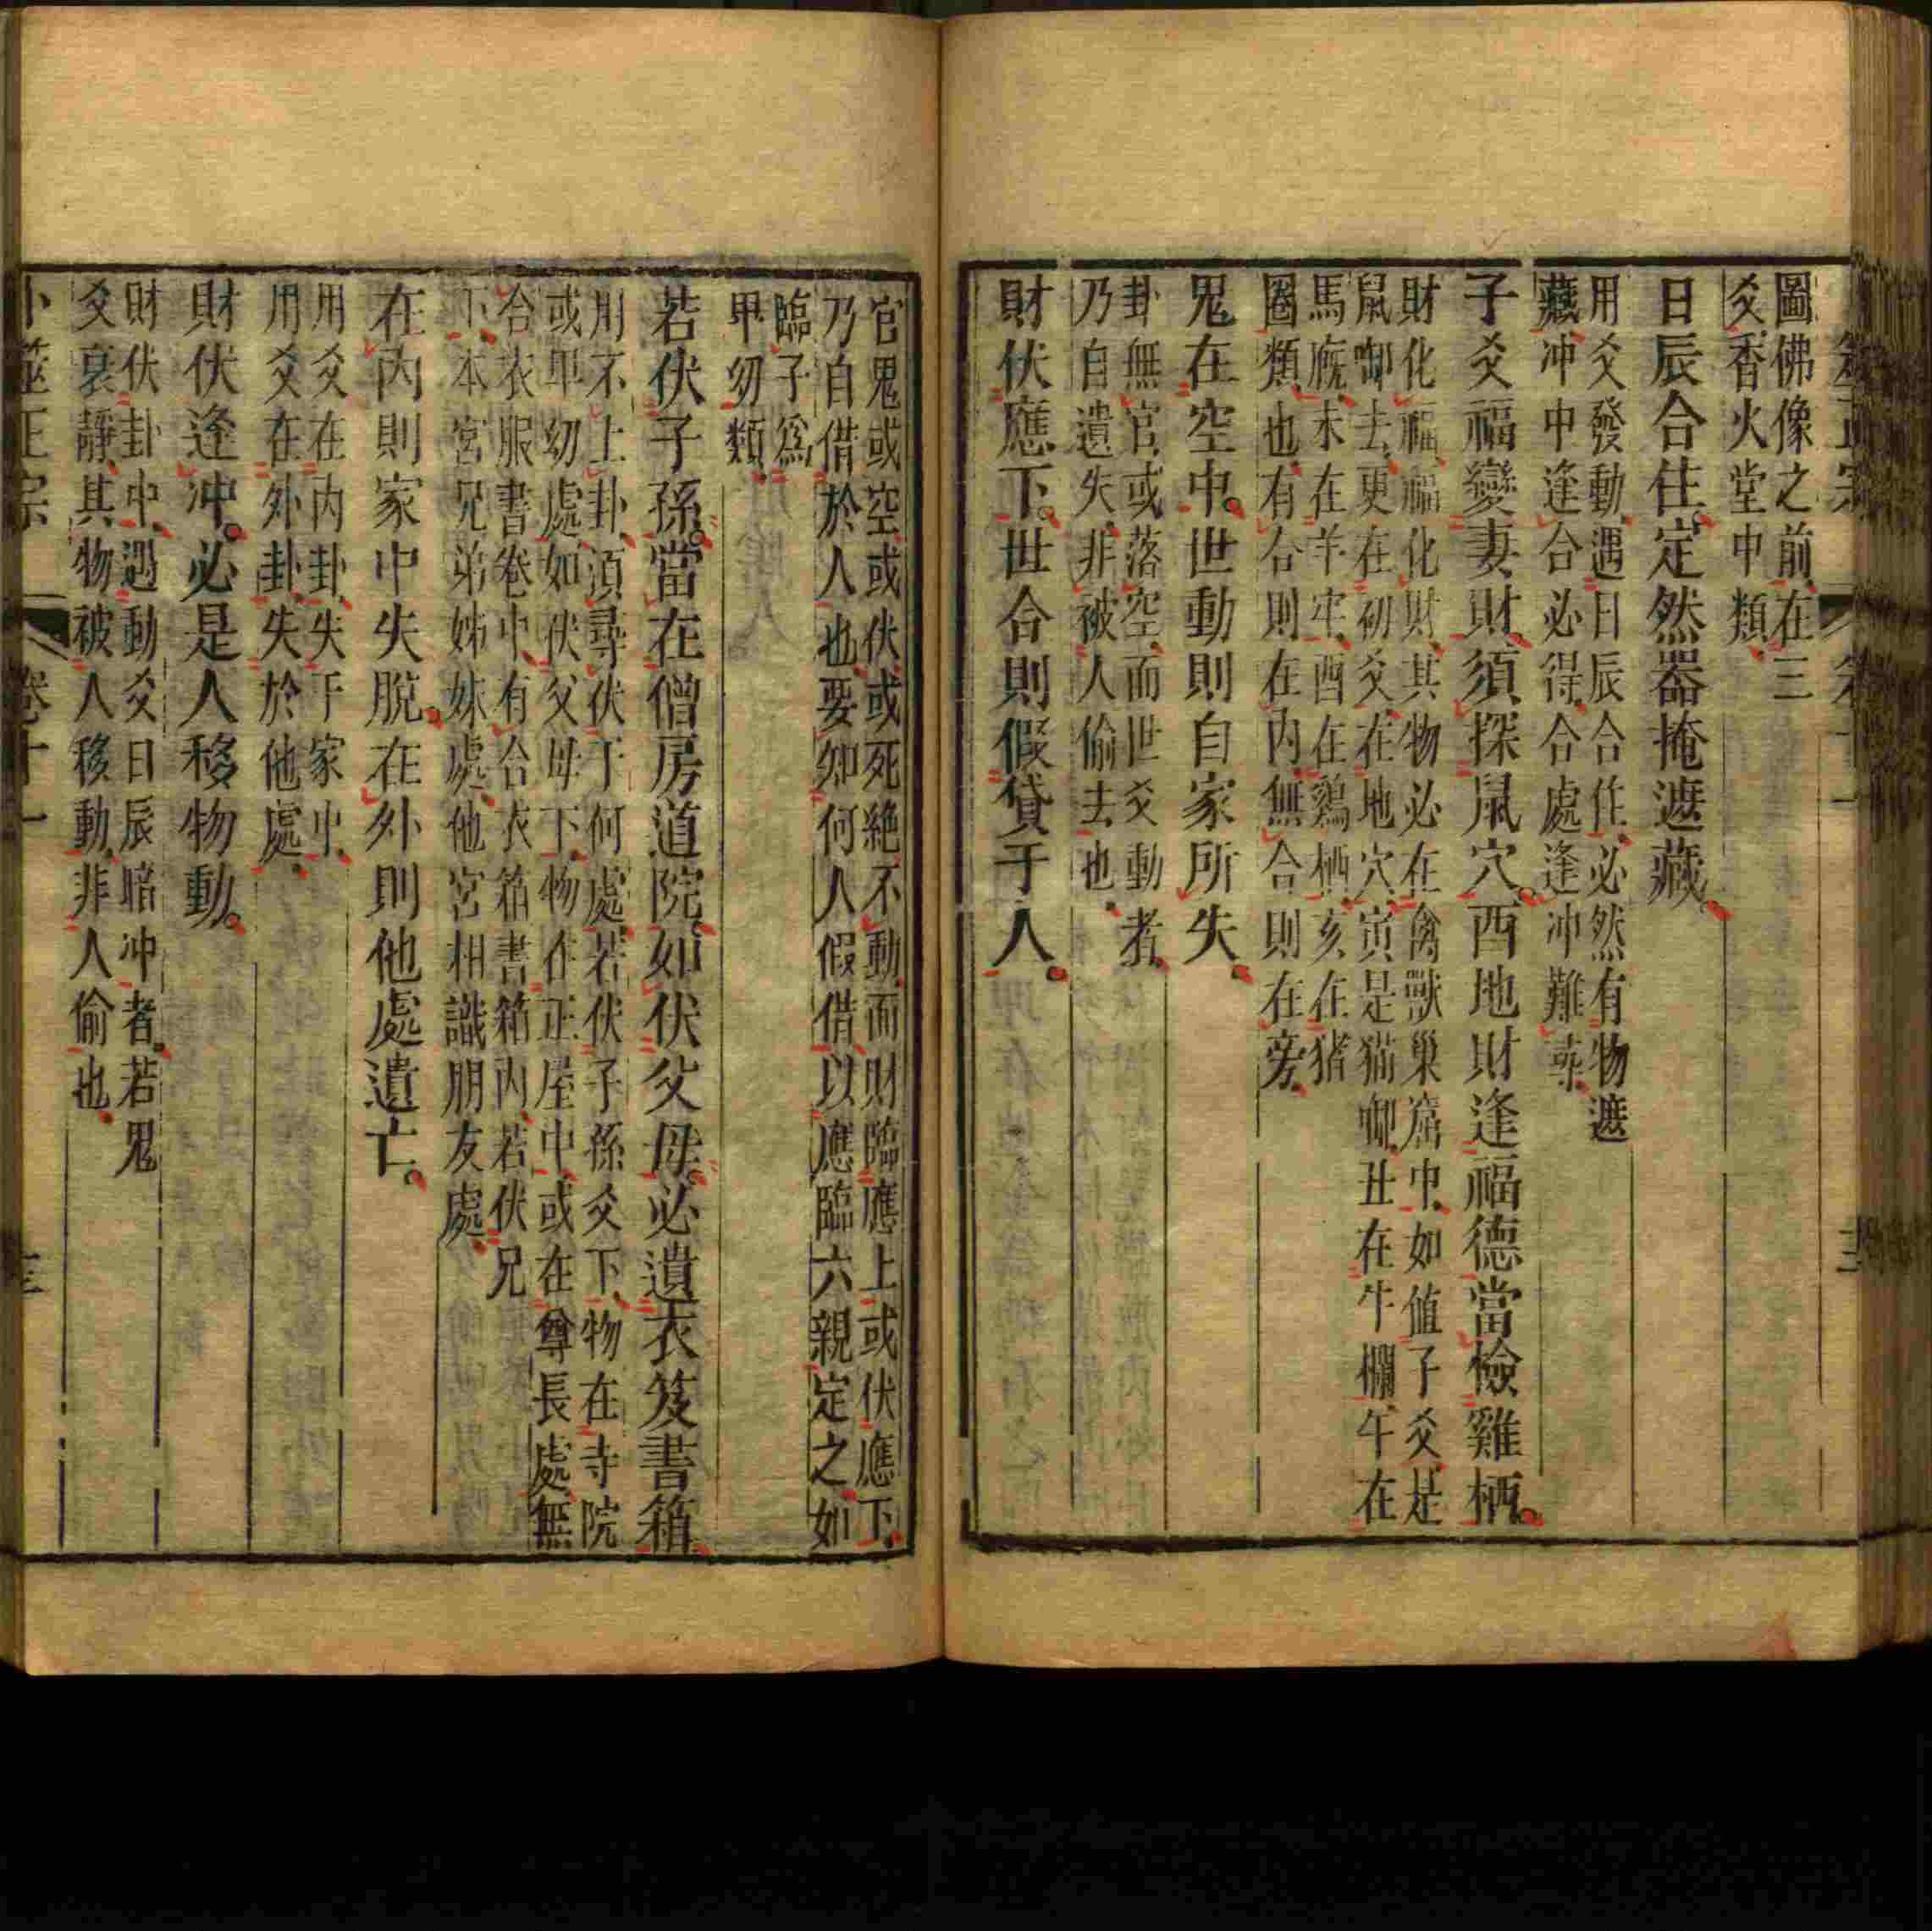 圖佛像之前在三
爻香火堂中類
日辰合住定然器掩遮藏
用爻發動遇日辰合住必然有物遮
藏冲中逢合必得合處逢冲難尋
子爻福變妻財須探鼠穴酉地財逢福德當檢雞栖
財化福福化財其物必在禽獸巢窟中如值子爻是
鼠啣去更在初爻在地穴寅是猫啣丑在牛欄午在
馬廐未在羊牢酉在鷄栖亥在猪
圈類也有合則在內無合則在旁
鬼在空中世動則自家所失
卦無官或落空而世爻動者
乃自遺失非被人偷去也
財伏應下世合則假貸于人
官鬼或空或伏或死絕不動而財臨應上或伏應下
乃自借於人也要知何人假借以應臨六親定之如
臨子爲
卑幼類
若伏子孫當在僧房道院如伏父母必遺衣笈書箱
用不上卦須尋伏于何處若伏子孫爻下物在寺院
或卑幼處如伏父母下物在正屋中或在尊長處無
合衣服書卷中有合衣箱書箱內若伏兄
下本宮兄弟姊妹處他宮相識朋友處
在內則家中失脫在外則他處遺亡
用爻在內卦失于家中
用爻在外卦失於他處
財伏逢冲必是人移物動
財伏卦中遇動爻日辰暗冲者若鬼
爻衰靜其物被人移動非人偷也
卜筮正宗 卷十一